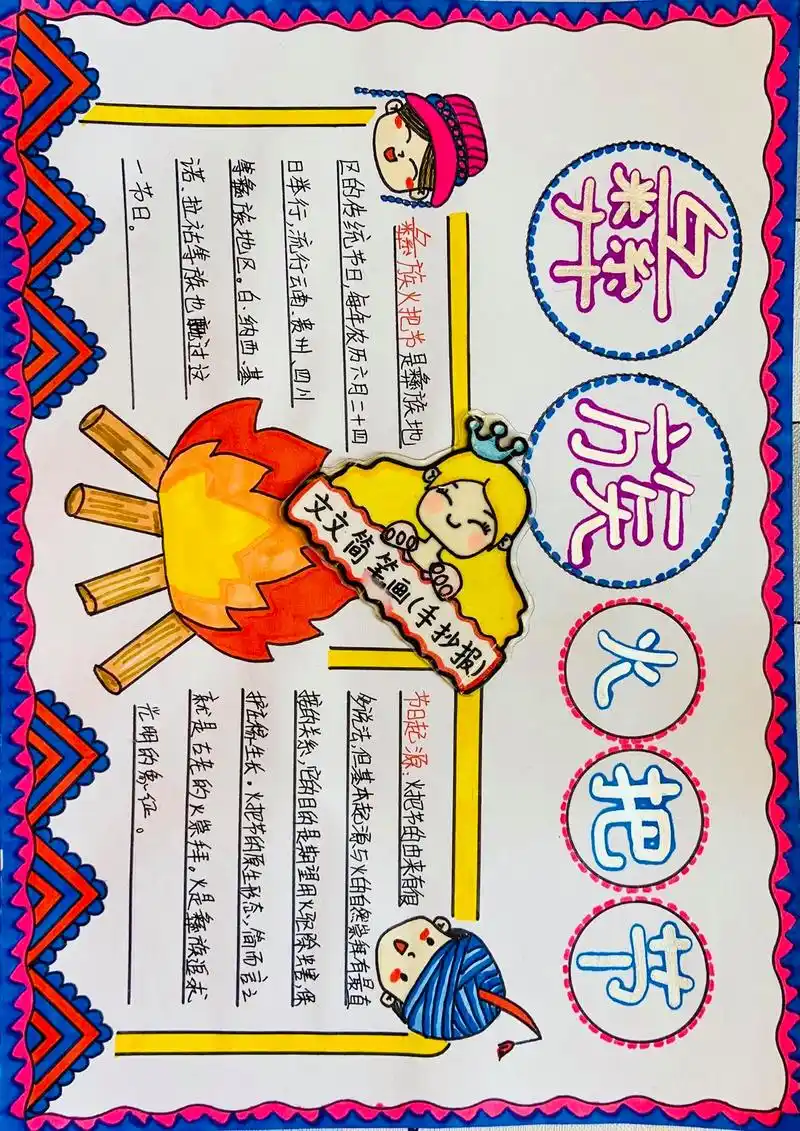 彝族火把节
彝族火把节是彝族地
区的传统节日，每年农历六月二十四
日举行，流行云南、贵州、四川
等彝族地区。白、纳西、基
诺、拉祜等族也过过这
一节日。
文文简笔画(手抄报)
节日起源：火把节的由来有很
多说法，但基本起源与火的自然崇拜有最直
接的关系，它的目的是期望用火驱除虫害，保
护庄稼生长。火把节的原生形态，简而言之
就是古老的火崇拜。火是彝族追求
光明的象征。